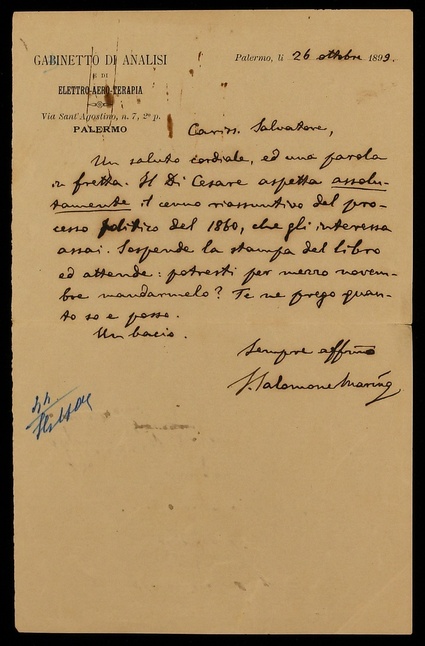 GABINETTO DI ANALISI
E DI
ELETTRO-AERO-TERAPIA
Via Sant'Agostino, n. 7, 2º p.
PALERMO
Palermo, li 26 ottobre 1899.
Cariss. Salvatore,
Un saluto cordiale, ed una parola
in fretta. Il Di Cesare aspetta assolu-
tamente il cenno riassuntivo del pro-
cesso politico del 1860, che gli interessa
assai. Sospende la stampa del libro
ed attende: potresti per mezzo novem-
bre mandarmelo? Te ne prego quan-
to so e posso.
Un bacio.
Sempre affmo
S. Salomone Marino